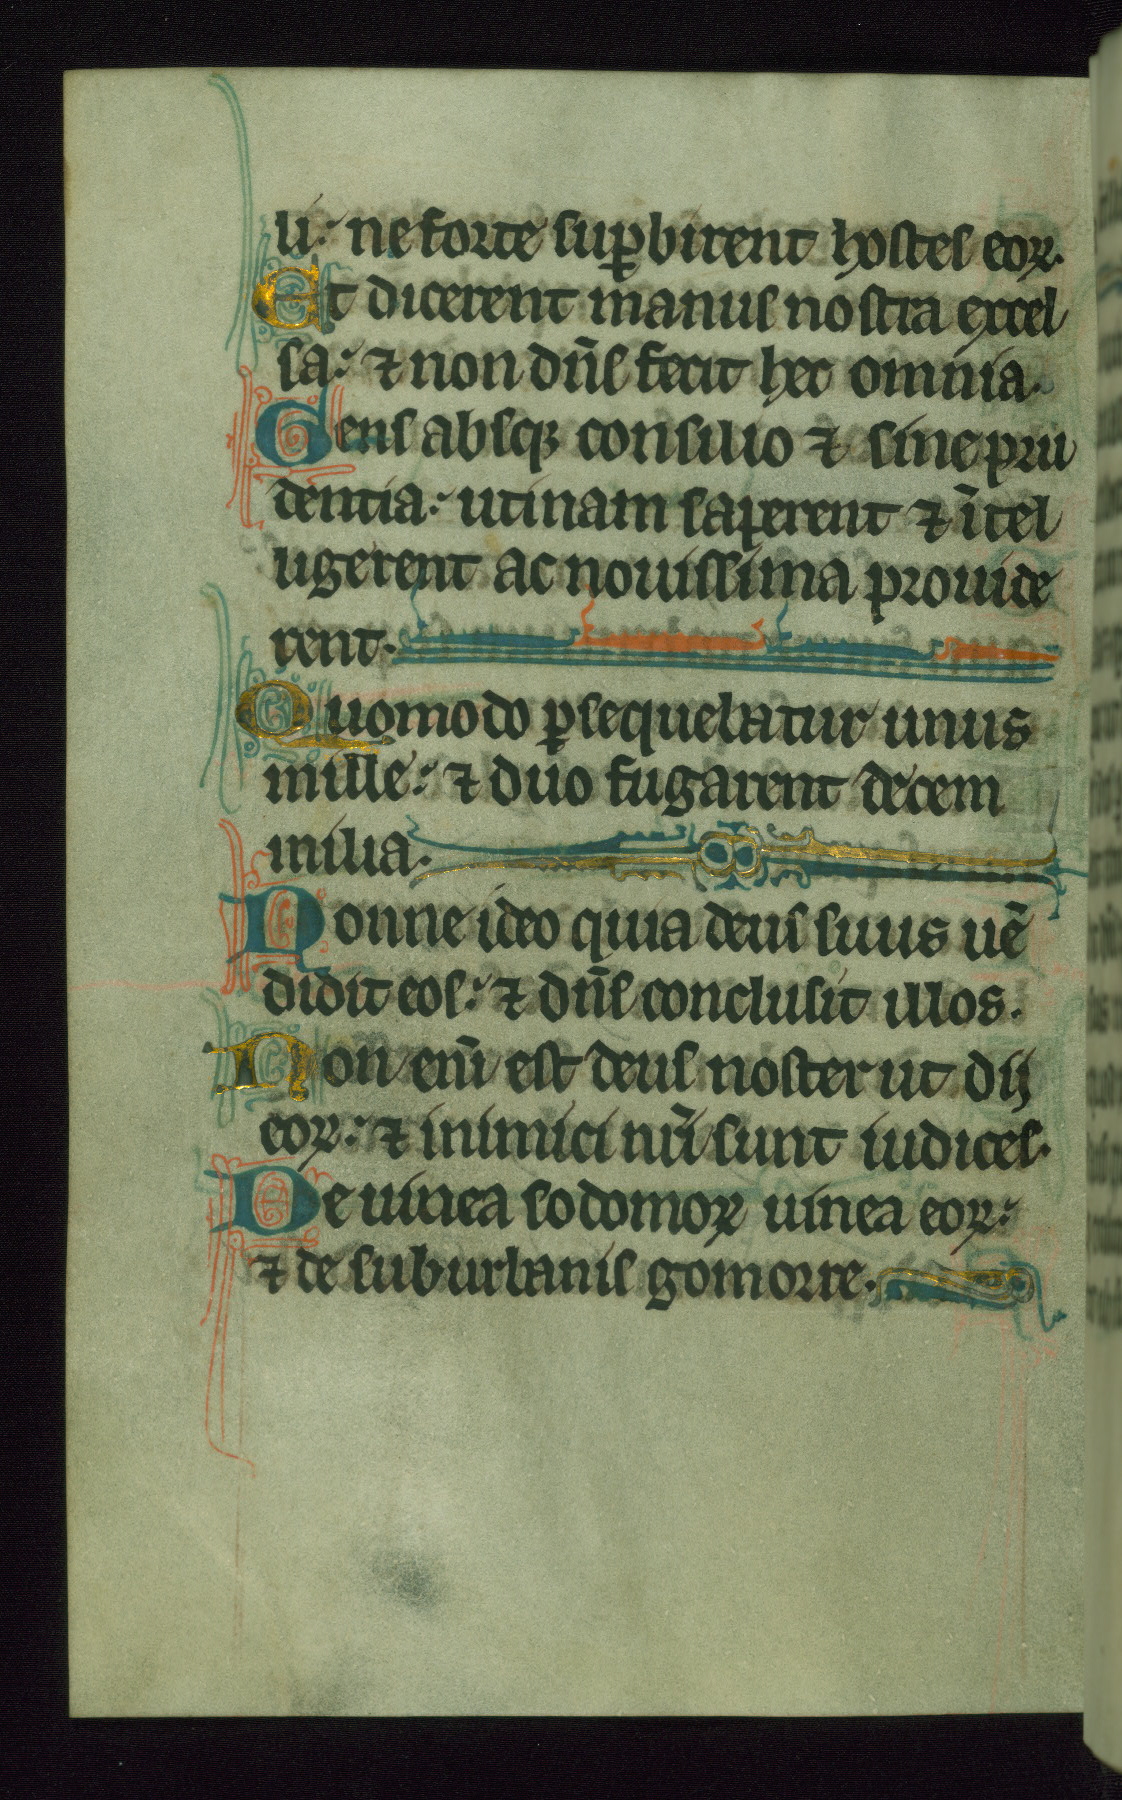 li: ne forte sup̱birent hostes eoꝝ.
Et dicerent manus nostra excel
sa: ⁊ non dn̄s fecit hec omnia.
Gens absqꝫ consilio ⁊ sine pru
dentia: utinam saperent ⁊ ītel
ligerent ac nouissima prouide
rent.
Quomodo ꝑsequebatur unus
mille: ⁊ duo fugarent decem
milia.
Nonne ideo quia deus suus uē
didit eos: ⁊ dn̄s conclusit illos.
Non enī est deus noster ut dij
eoꝝ: ⁊ inimici nr̄i sunt iudices.
De uinea sodomoꝝ uinea eoꝝ:
⁊ de suburbanis gomorre.